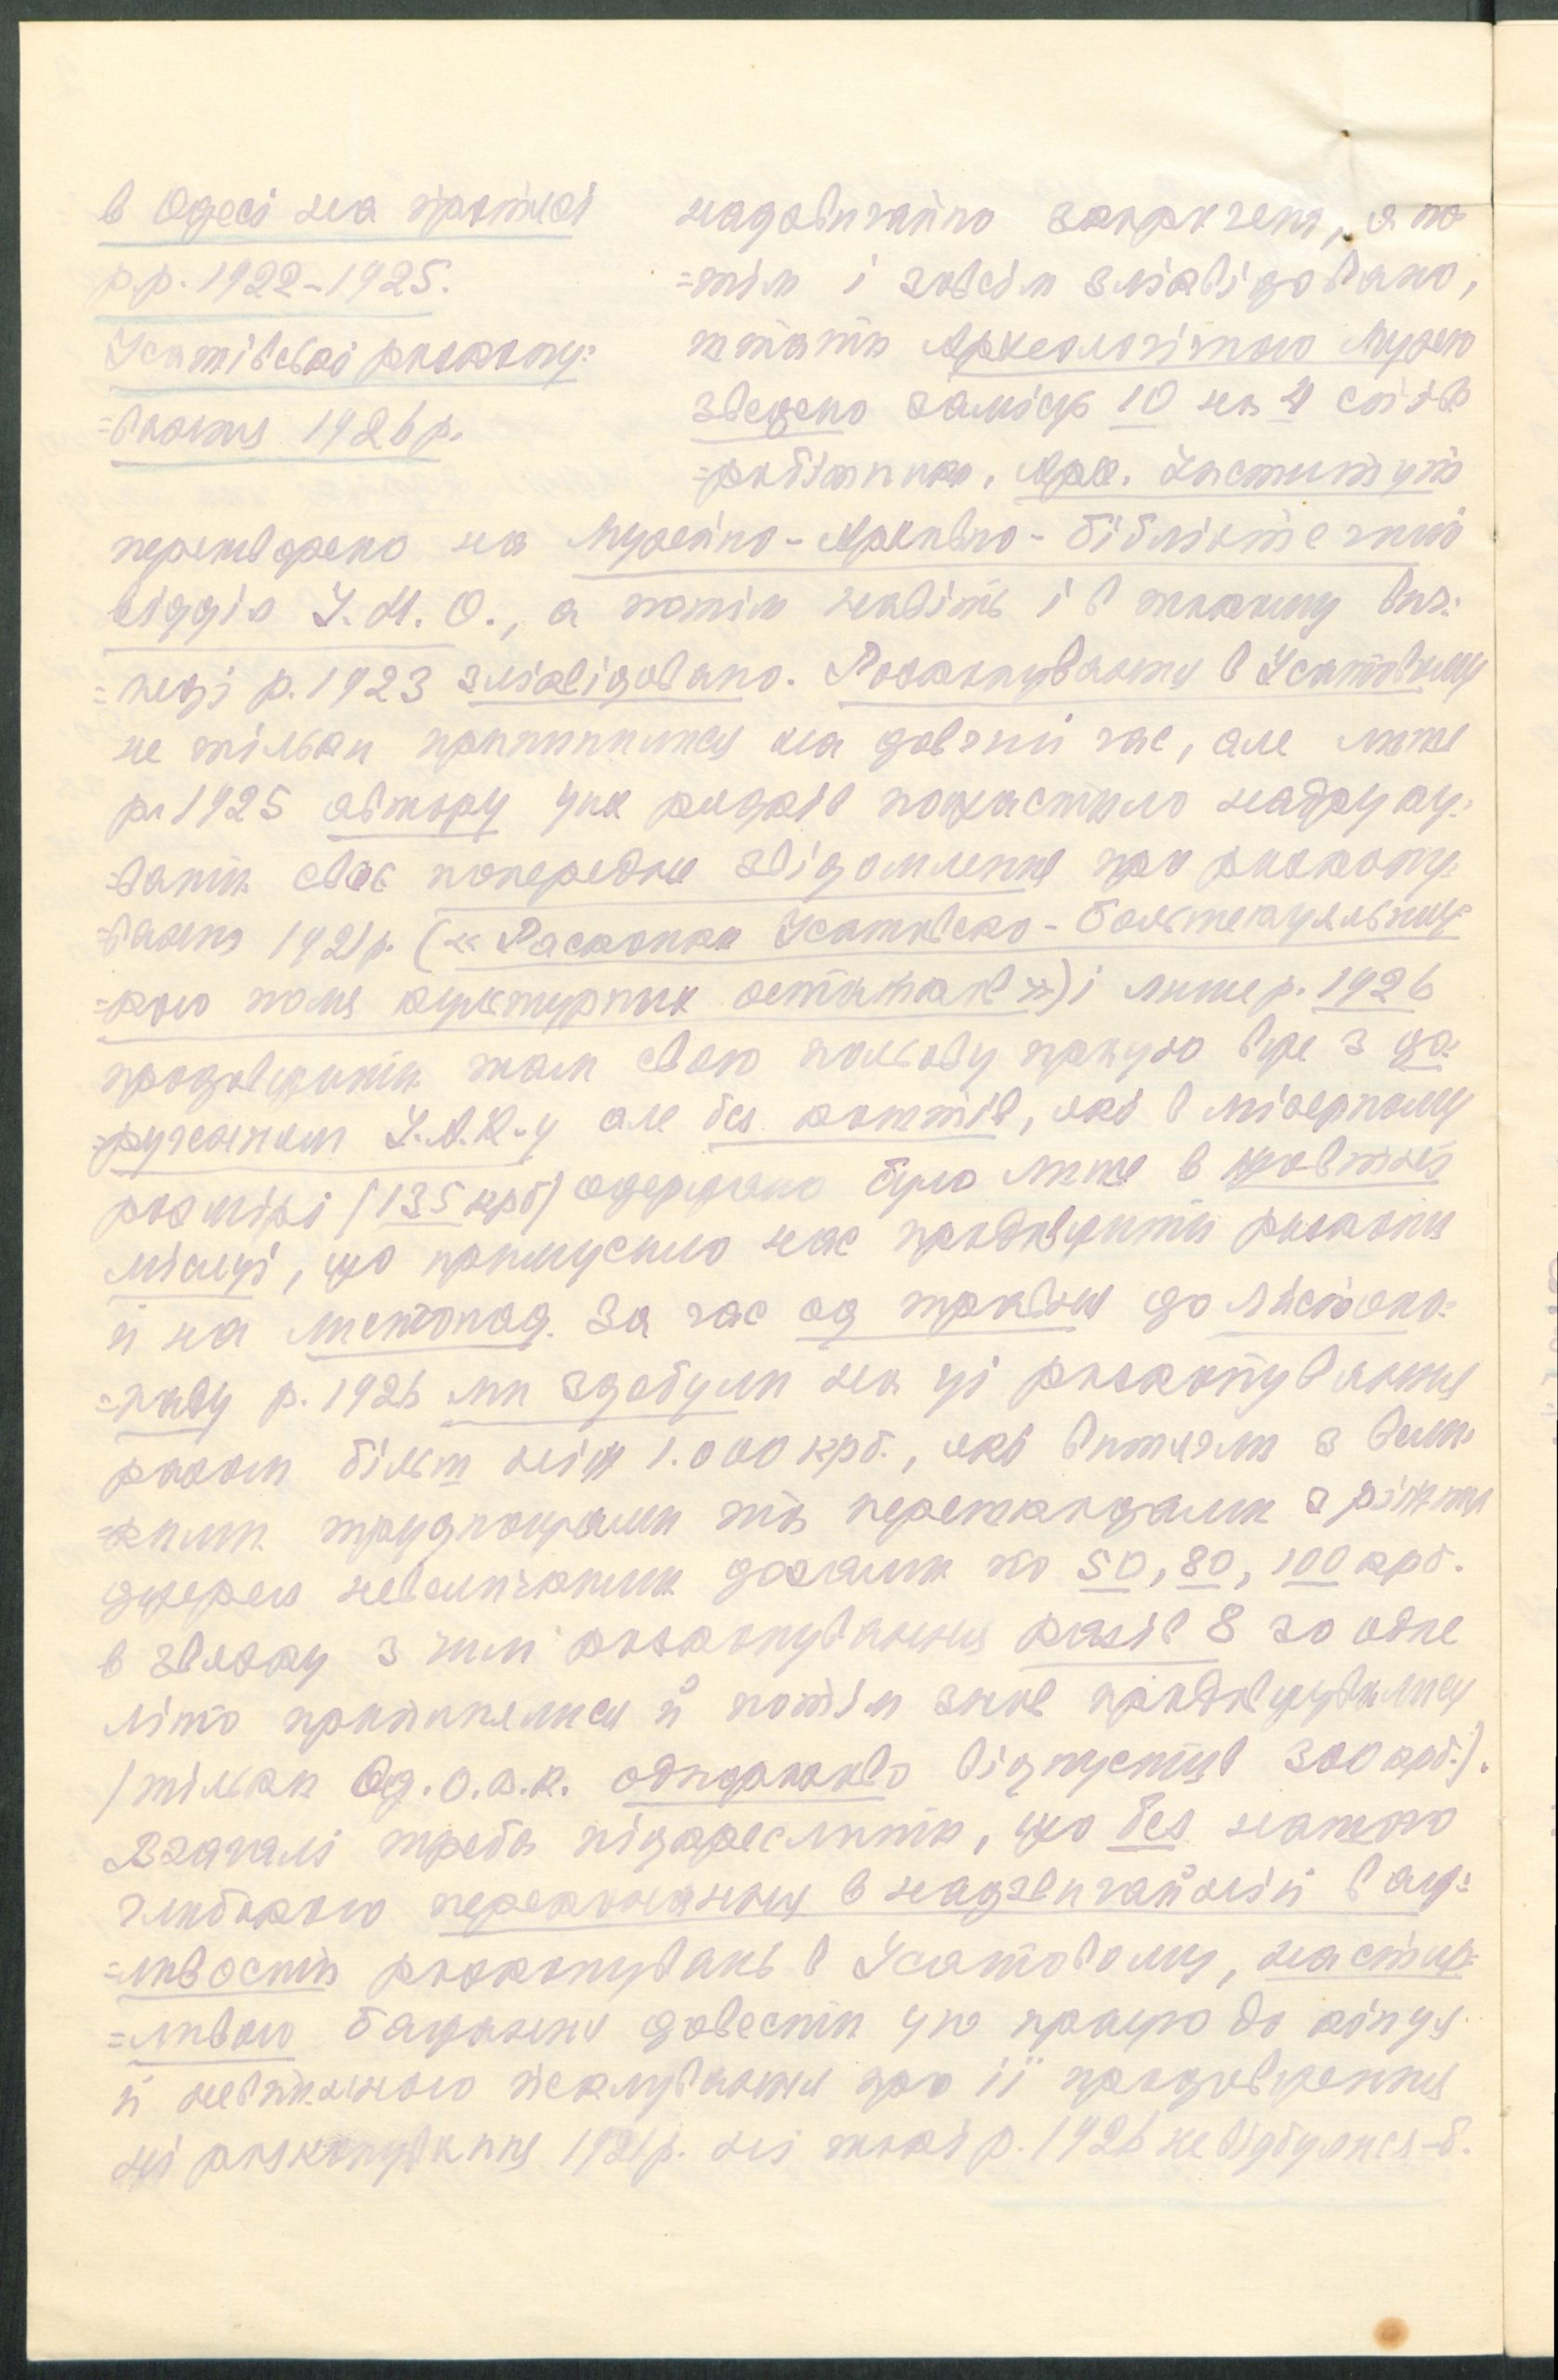 в Одесі на протязі
р.р. 1922-1925.
Усатівські роскопу=
=вання 1926 р.
надзвичайно скорочено, а по
=тім і зовсім зліквідовано,
штати Археологічного Музею
зведено замісць 10 на 4 спів
=робітники, Арх. Інститут
перетворено на Музейно-Архивно-бібліотечний
відділ І.Н.О., а потім навіть і в такому виг=
=ляді р. 1923 зліквідовано. Роскопування в Усатовому
не тільки припинилися на довгий час, але лише
р. 1925 автору цих рядків пощастило надруку=
=вати своє попереднє звідомлення про роскопу=
=вання 1921 р. («Раскопки Усатовско-Большекуяльниц=
=кого поля культурных остатков») і лише р. 1926
продовжити там свою польову працю вже з до=
=рученням У.А.К-у але без коштів, які в мізерному
розмірі (135 крб) одержано було лише в жовтні
місяці, що примусило нас продовжити роскопи
й на листопад. За час од травня до листопа=
=наду р. 1926 ми здобули на ці роскопування
разом більш ніж 1.000 крб., які витягли з вели=
=кими труднощами та перешкодами з ріжних
джерел невеличкими дозами по 50, 80, 100 крб.
в звязку з чим роскопування разів 8 за одне
літо припинялися й потім знов продовжувалися
(тільки Од.О.В.К. одноразово відпустив 300 крб.).
Взагалі треба підкреслити, що без нашого
глибокого переконання в надзвичайній важ=
=ливости роскопувань в Усатовому, настир=
=ливого бажання довести цю працю до кінця
й невпинного піклування про її продовження
ні роскопування 1921 р. ні такі р. 1926 не відбулися-б.